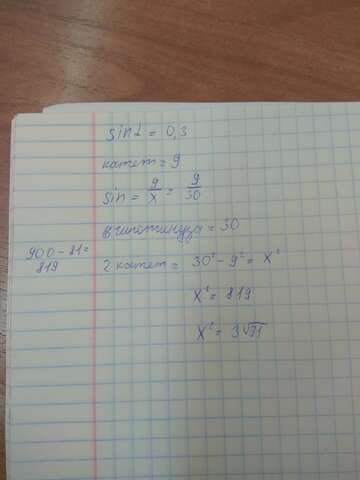 sin α = 0,3
катет = 9
sin = 9/x = 9/30
гипотенуза = 30
900 - 81 =
819
2 катет = 30² - 9² = x²
x² = 819
x² = 3√91